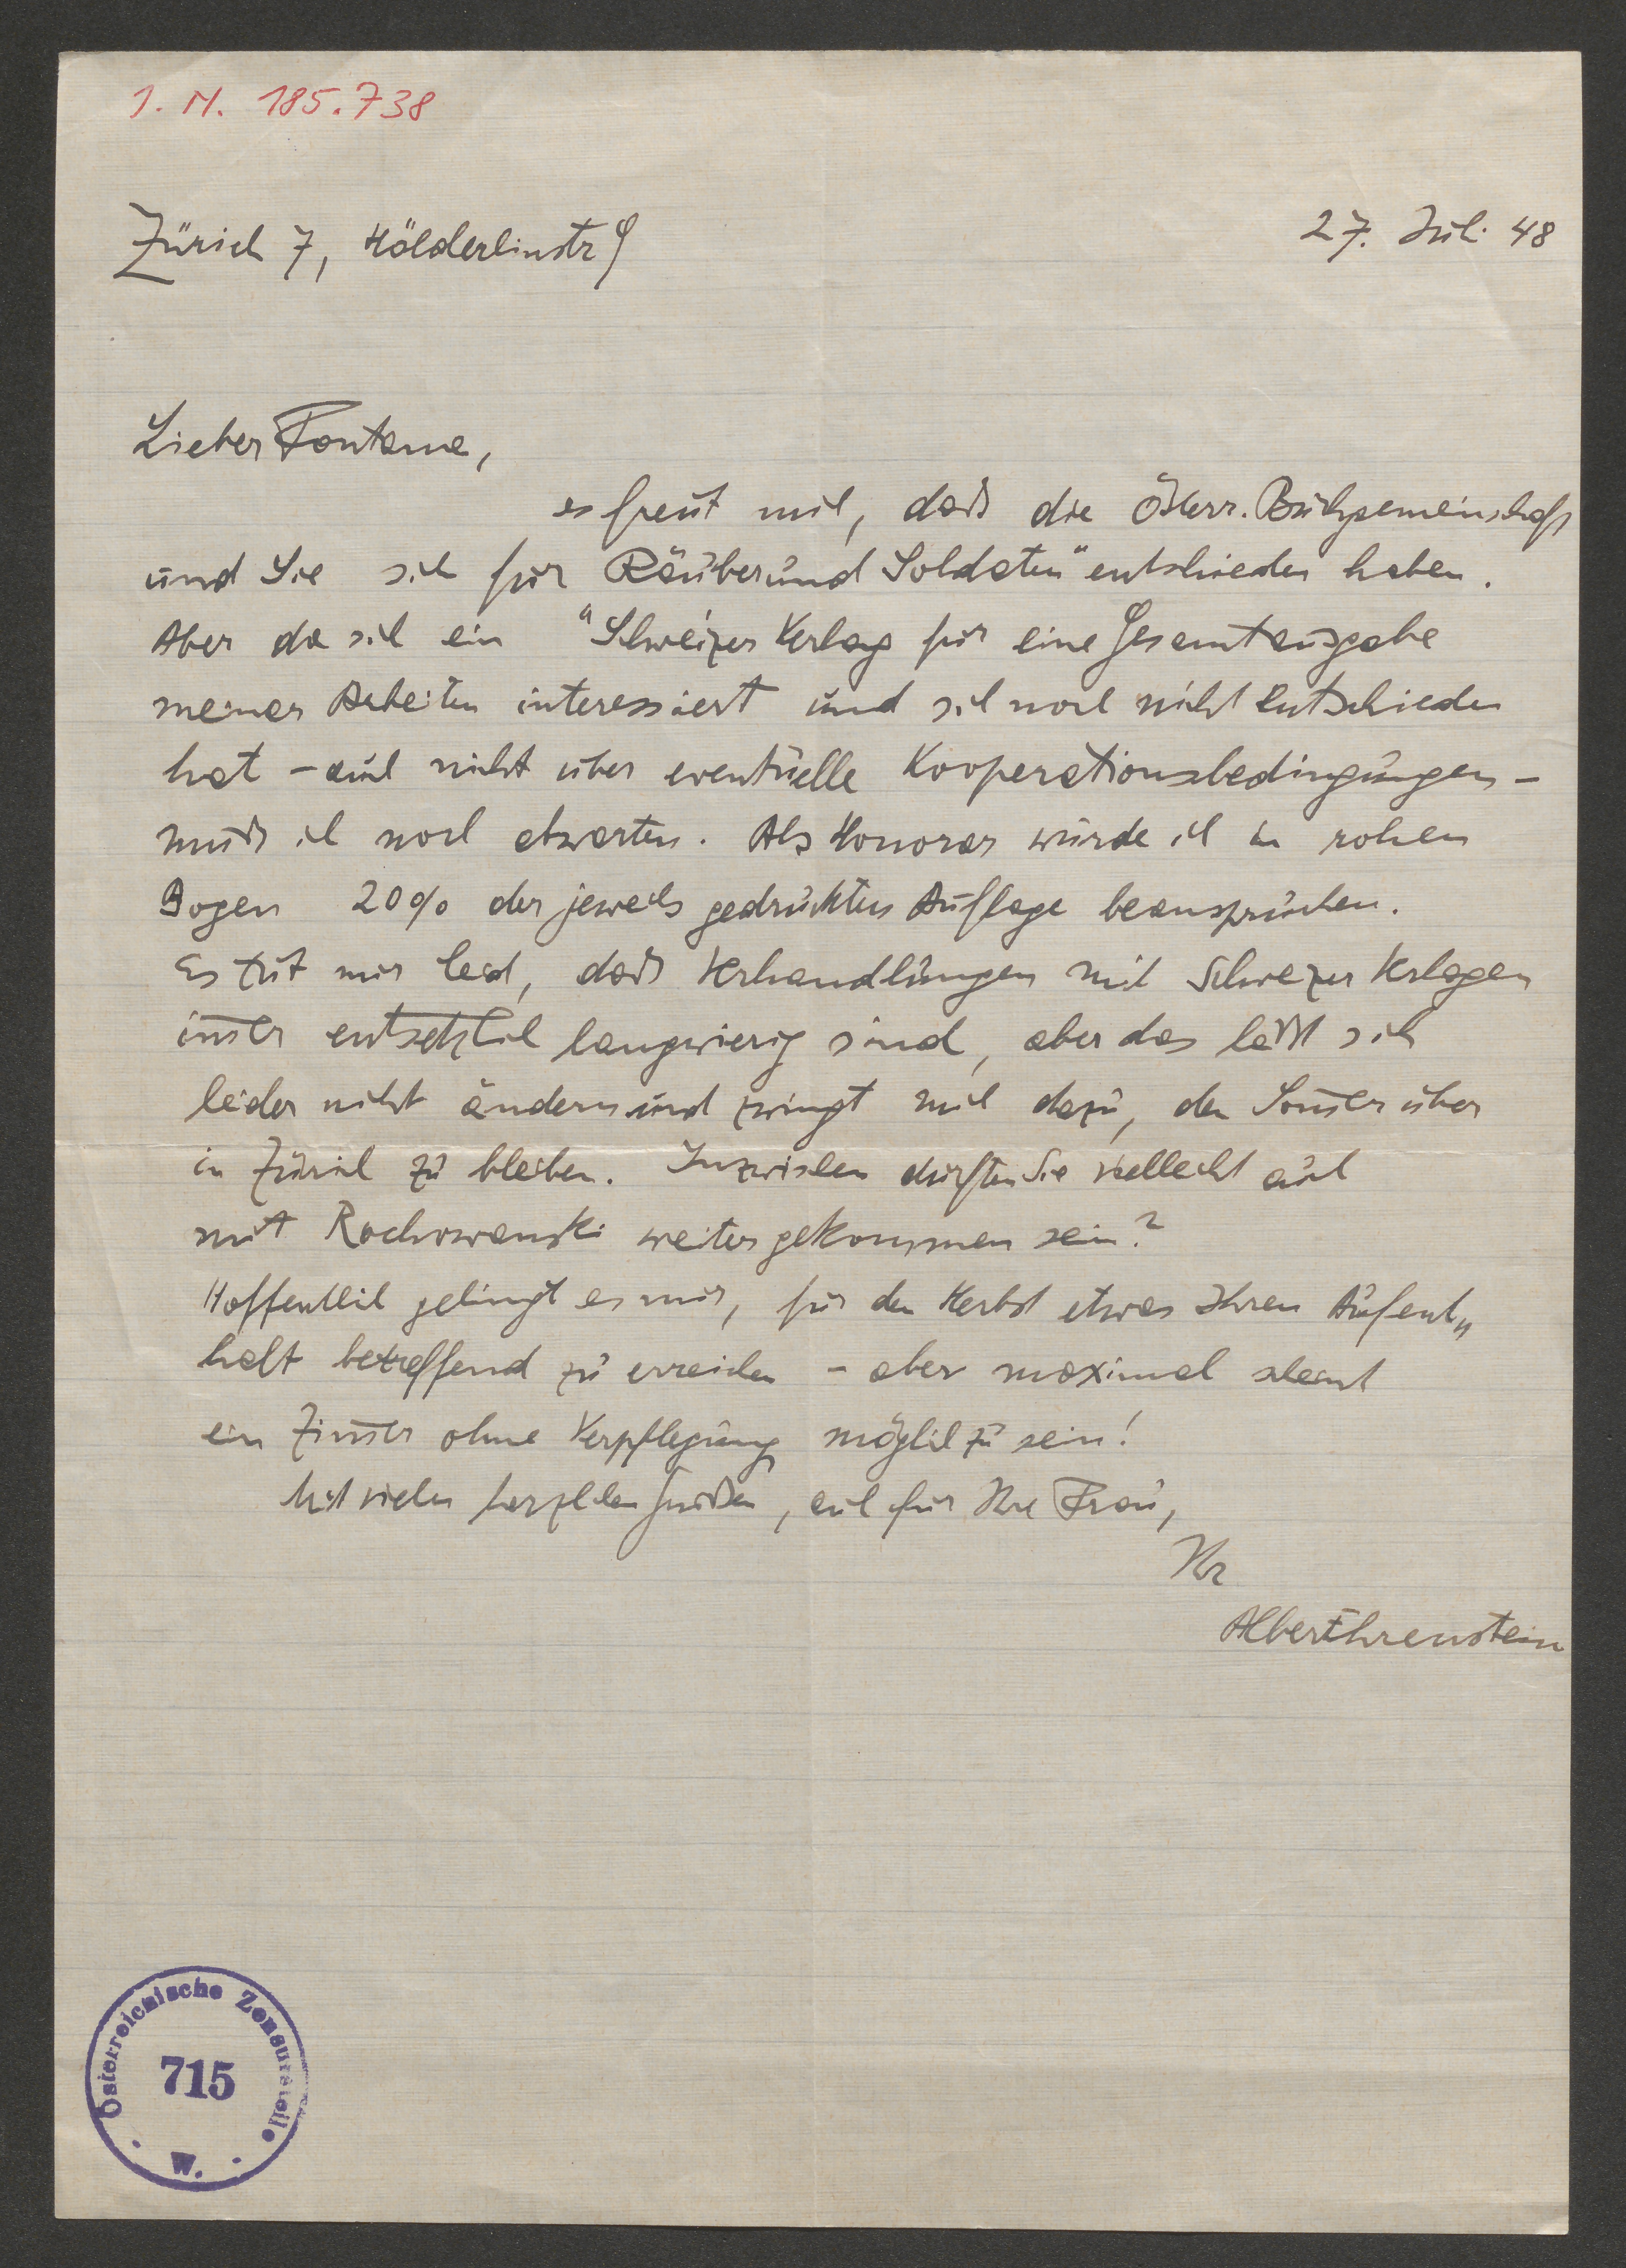 I. N. 185.738
Zürich 7, Hölderlinstr 9
27. Juli 48
Lieber Fontana,
es freut mich, daß die Österr. Buchgemeinschaft
und Sie sich für Räuber und Soldaten" entschieden haben.
Aber da sich ein "Schweizer Verlag für eine Gesamtausgabe
meiner Arbeiten interessiert und sich noch nicht entschieden
hat – auch nicht über eventuelle Kooperationsbedingungen –
muß ich noch abwarten. Als Honorar würde ich in rohen
Bogen 20% der jeweils gedruckten Auflage beanspruchen.
Es tut mir leid, daß Verhandlungen mit Schweizer Verlagen
immer entsetzlich langwierig sind, aber das läßt sich
leider nicht ändern und zwingt mich dazu, den Sommer über
in Zürich zu bleiben. Inzwischen dürften Sie vielleicht auch
mit Rochowanski weitergekommen sein?
Hoffentlich gelingt es mir, für den Herbst etwas Ihren Aufent„
halt betreffend zu erreichen – aber maximal scheint
ein Zimmer ohne Verpflegung möglich zu sein!
Mit vielen herzlichen Grüßen, auch für Ihre Frau,
Ihr
Albert Ehrenstein
Österreichische Zensurstelle
715
W.